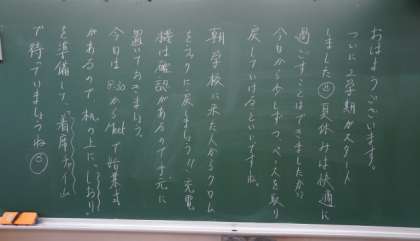 おはようございます。
ついに2学期がスタート
しました☺夏休みは快適に
過ごすことはできましたか?
今日から少しずつペースを取り
戻していけるといいですね。
朝学校に来た人からクロム
をみどりに戻しましょう!!充電
機は確認があるので手元に
置いておきましょう。
今日は8:30からMeetで始業式
があるので机の上に、しおり
を準備して、着席タイム
で待っていましょうね☺